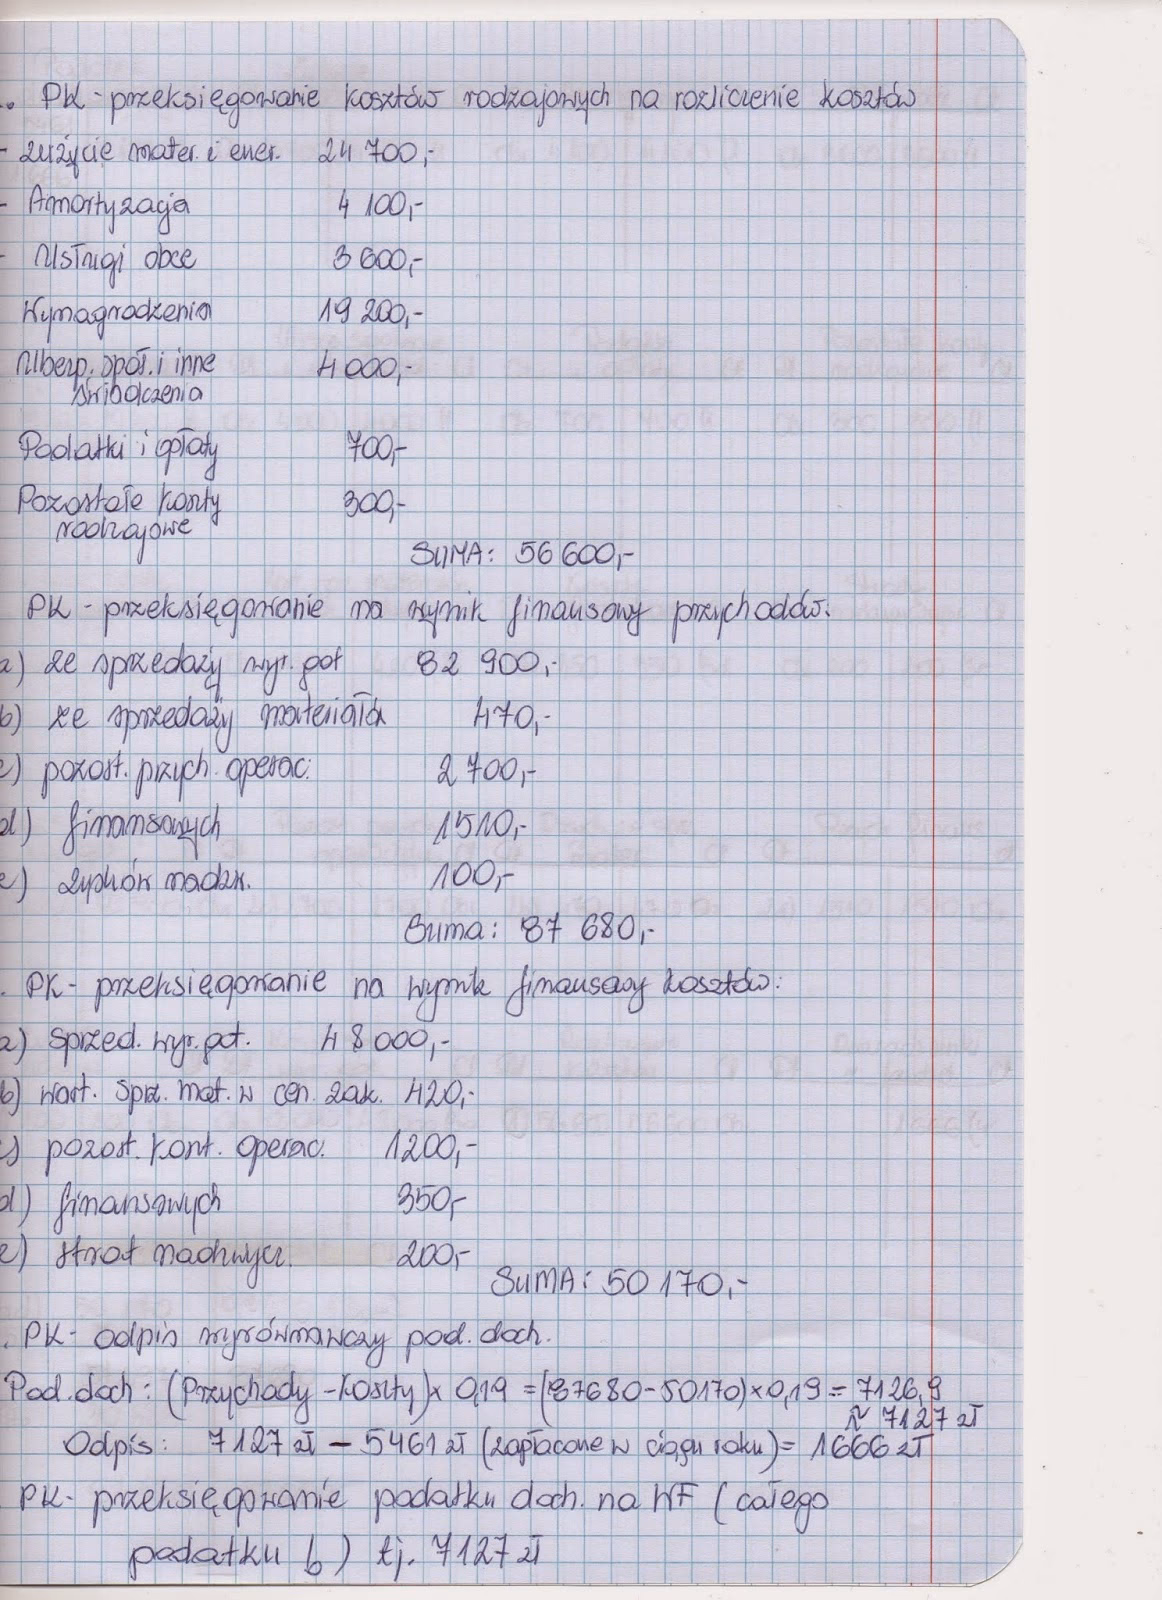 . PK - przeksięgowanie kosztów rodzajowych na rozliczenie kosztów
- zużycie mater. i ener. 24 700,-
- Amortyzacja 4 100,-
- Usługi obce 3 600,-
Wynagrodzenia 19 200,-
Ubezp. społ. i inne 4 000,-
świadczenia
Podatki i opłaty 700,-
Pozostałe koszty 300,-
rodzajowe
SUMA: 56 600,-
PK - przeksięgowanie na wynik finansowy przychodów:
a) ze sprzedaży wyr. got 82 900,-
b) ze sprzedaży materiałów 470,-
c) pozost. przych. operac. 2 700,-
d) finansowych 1510,-
e) zysków nadzw. 100,-
Suma: 87 680,-
. PK - przeksięgowanie na wynik finansowy kosztów:
a) sprzed. wyr. got. 48 000,-
b) wart. sprz. mat. w cen. zak. 420,-
c) pozost. koszt. operac. 1200,-
d) finansowych 350,-
e) strat nadzwycz. 200,-
SUMA: 50 170,-
. PK - odpis wyrównawczy pod. doch.
Pod. doch: (Przychody - koszty) x 0,19 = (87680 - 50170) x 0,19 = 7126,9
≈ 7127 zł
Odpis: 7127 zł - 5461 zł (zapłacone w ciągu roku) = 1666 zł
PK - przeksięgowanie podatku doch. na WF (całego
podatku b) tj. 7127 zł